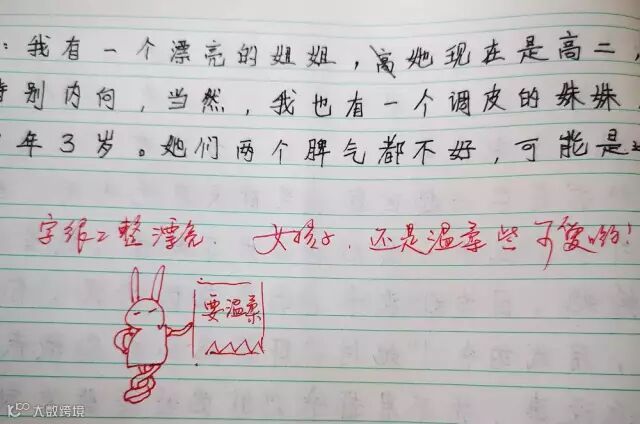 ：我有一个漂亮的姐姐，她现在是高二，
特别内向，当然，我也有一个调皮的妹妹
年3岁。她们两个脾气都不好，可能是
字很工整漂亮．女孩子，还是温柔些可爱哟！
要温柔
大数跨境